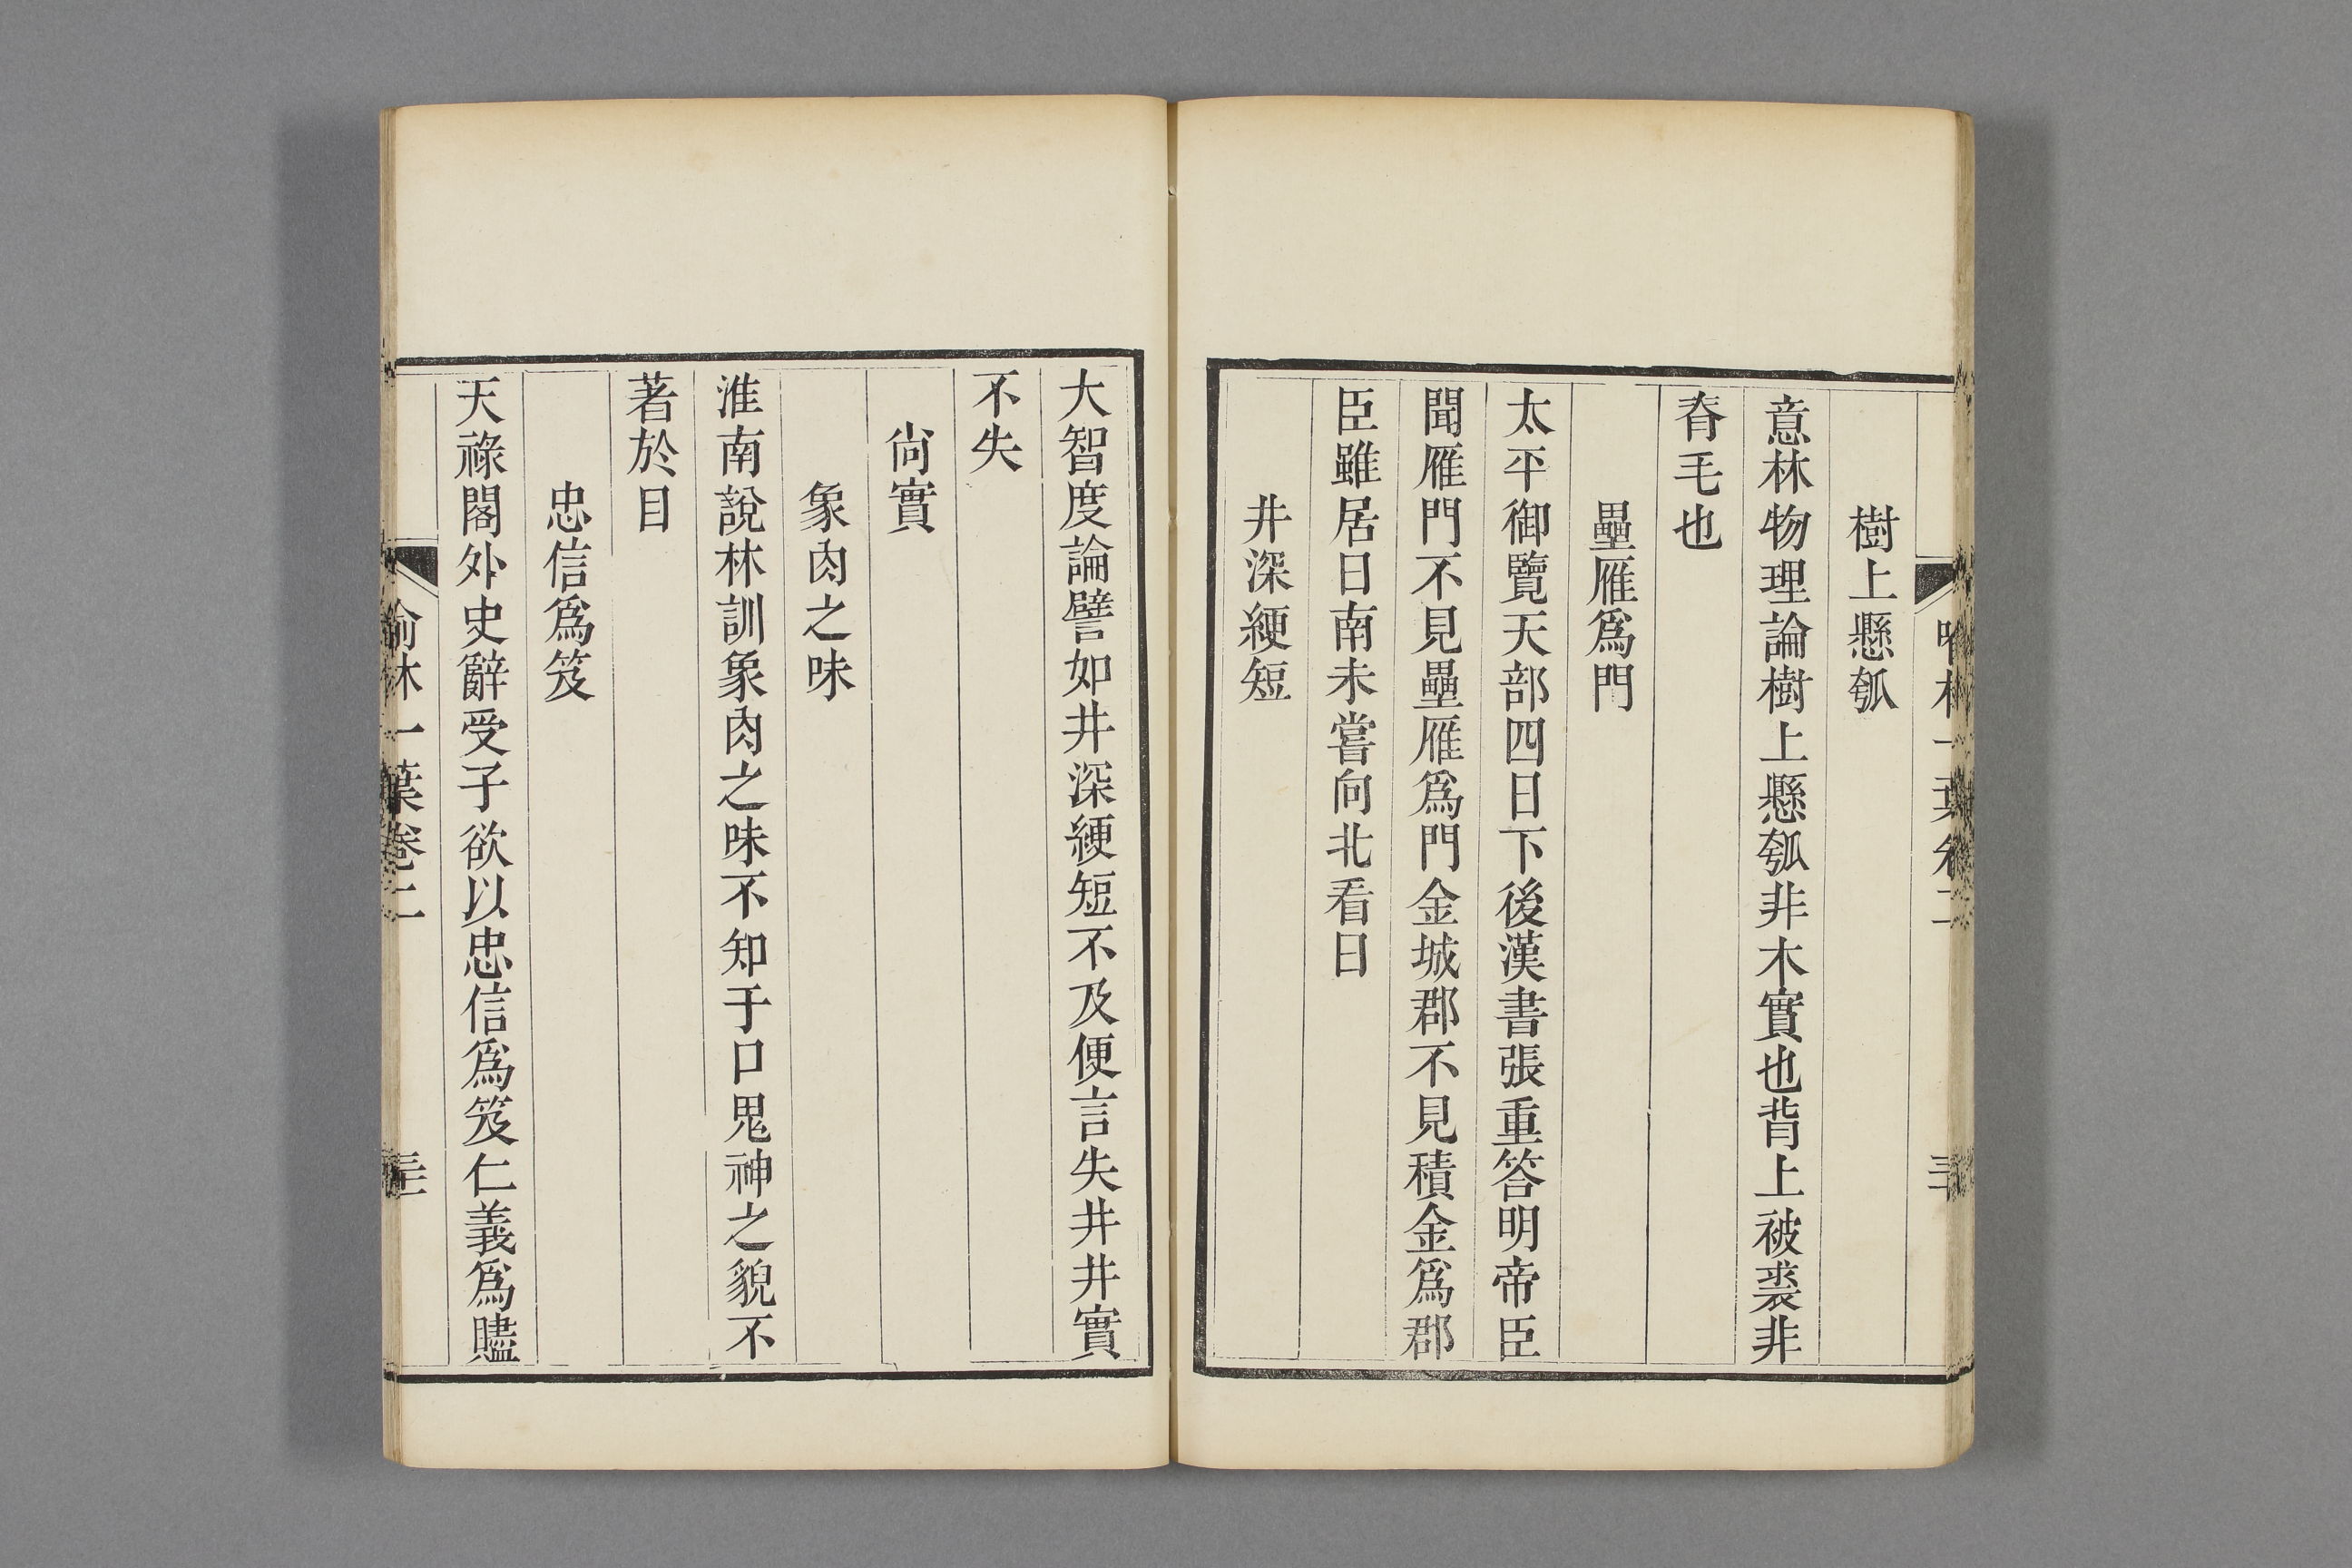 樹上懸瓠
意林物理論樹上懸瓠非木實也背上被裘非
脊毛也
壘雁爲門
太平御覽天部四日下後漢書張重答明帝臣
聞雁門不見壘雁爲門金城郡不見積金爲郡
臣雖居日南未嘗向北看日
井深綆短
大智度論譬如井深綆短不及便言失井井實
不失
尙實
象肉之味
淮南說林訓象肉之味不知于口鬼神之貌不
著於目
忠信爲笈
天祿閣外史辭受子欲以忠信爲笈仁義爲贐
喻林一葉卷二